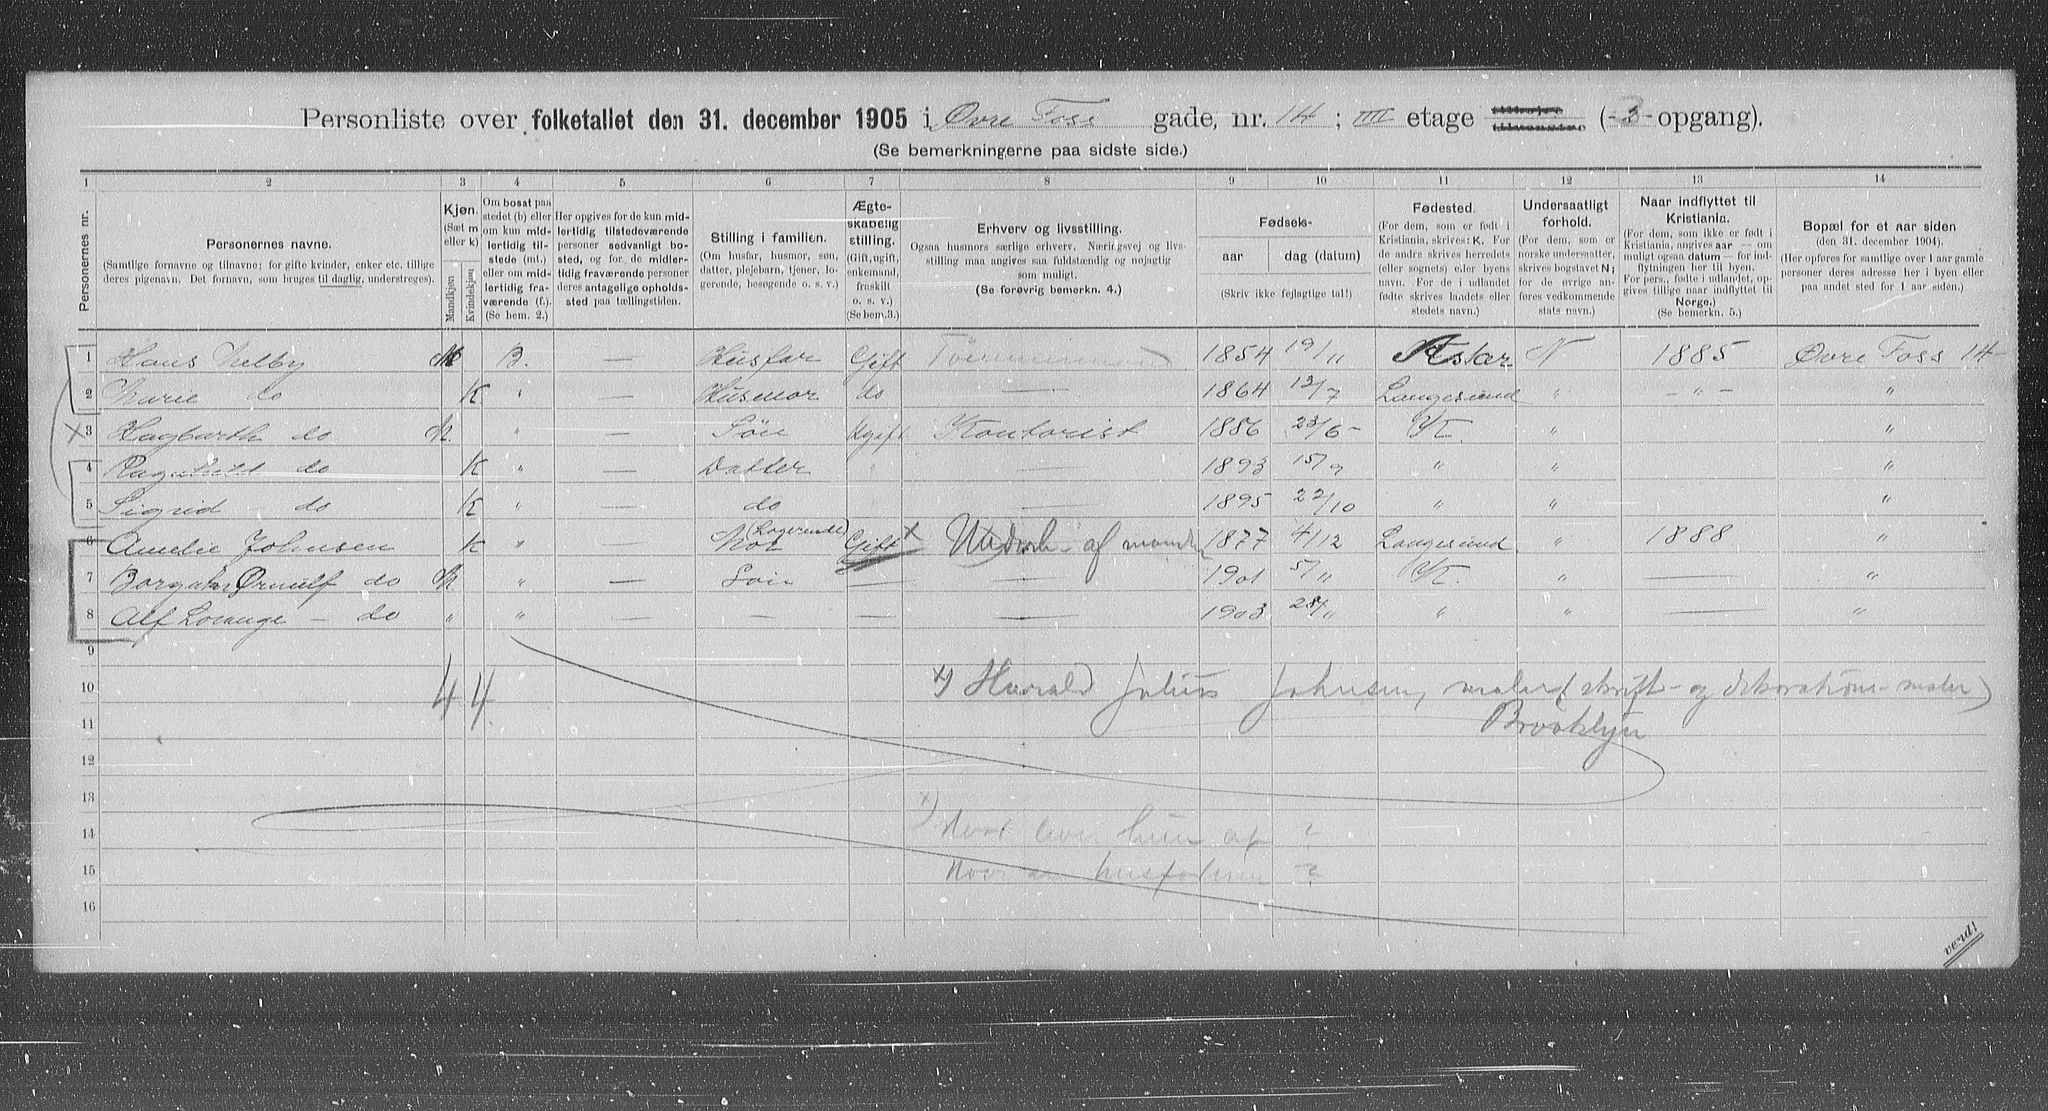 Personliste over folketallet den 31. december 1905 i Øvre Foss gade, nr. 14; III etage tilhøjre tilvenstre (-3- opgang).
(Se bemerkningerne paa sidste side.)
1 2 3 4 5 6 7 8 9 10 11 12 13 14
Personernes nr.
Personernes navne.
(Samtlige fornavne og tilnavne; for gifte kvinder, enker etc. tillige
deres pigenavn. Det fornavn, som bruges til daglig, understreges).
Kjøn.
(Sæt m
eller k)
Mandkjøn
Kvindekjøn
Om bosat paa
stedet (b) eller
om kun mid-
lertidig til-
stede (mt.)
eller om mid-
lertidig fra-
værende (f.).
(Se bem. 2.)
Her opgives for de kun mid-
lertidig tilstedeværende
personer sedvanligt bo-
sted, og for de midler-
tidig fraværende personer
deres antagelige opholds-
sted paa tællingstiden.
Stilling i familien.
(Om husfar, husmor, søn,
datter, plejebarn, tjener, lo-
gerende, besøgende o. s. v.)
Ægte-
skabelig
stilling.
(Gift, ugift,
enkemand,
fraskilt
o. s. v.)
(Se bem. 3.)
Erhverv og livsstilling.
Ogsaa husmors særlige erhverv. Næringsvej og livs-
stilling maa angives saa fuldstændig og nøjagtig
som muligt.
(Se forøvrig bemerkn. 4.)
Fødsels-
aar
dag (datum)
(Skriv ikke fejlagtige tal!)
Fødested.
(For dem, som er født i
Kristiania, skrives: K. For
de andre skrives herredets
(eller sognets) eller byens
navn. For de i udlandet
fødte skrives landets eller
stedets navn.)
Undersaatligt
forhold.
(For dem, som er
norske undersaatter,
skrives bogstavet N;
for de øvrige an-
føres vedkommende
stats navn.)
Naar indflyttet til
Kristiania.
(For dem, som ikke er født i
Kristiania, angives aar — om
muligt ogsaa datum — for ind-
flytningen her til byen.
For pers., fødte i udlandet, op-
gives tillige naar indflyttet til
Norge.)
(Se bemerkn. 5.)
Bopæl for et aar siden
(den 31. december 1904).
(Her opføres for samtlige over 1 aar gamle
personer deres adresse her i byen eller
paa andet sted for 1 aar siden.)
1 Hans Melby M B. — Husfar Gift Tømmermand 1854 19/11 Asker N 1885 Øvre Foss 14
2 Marie do K " — Husmor do — 1864 13/7 Langesund " - " - "
X 3 Hagbarth do M. " — Søn Ugift Kontorist 1886 23/6 - K. " "
4 Ragnhild do K " — Datter " — 1893 15/9 " " "
5 Sigrid do K " — do — 1895 22/10 " " "
6 Amelie Johnsen K " — Mor (Logerende) Gift x Underh. af manden 1877 4/12 Langesund " 1888 "
7 Borgar Ørnulf do M " — Søn — — 1901 5/11 K. " — "
8 Alf Lorange - do " " — — — 1903 28/11 " " — "
9
10 4 4 x) Harald Julius Johnsen, maler (skrift- og dekorations-maler)
11 Brooklyn
12
13
14 x) Hvad lever hun af ?
15 Hvor er husfaderen ?
16